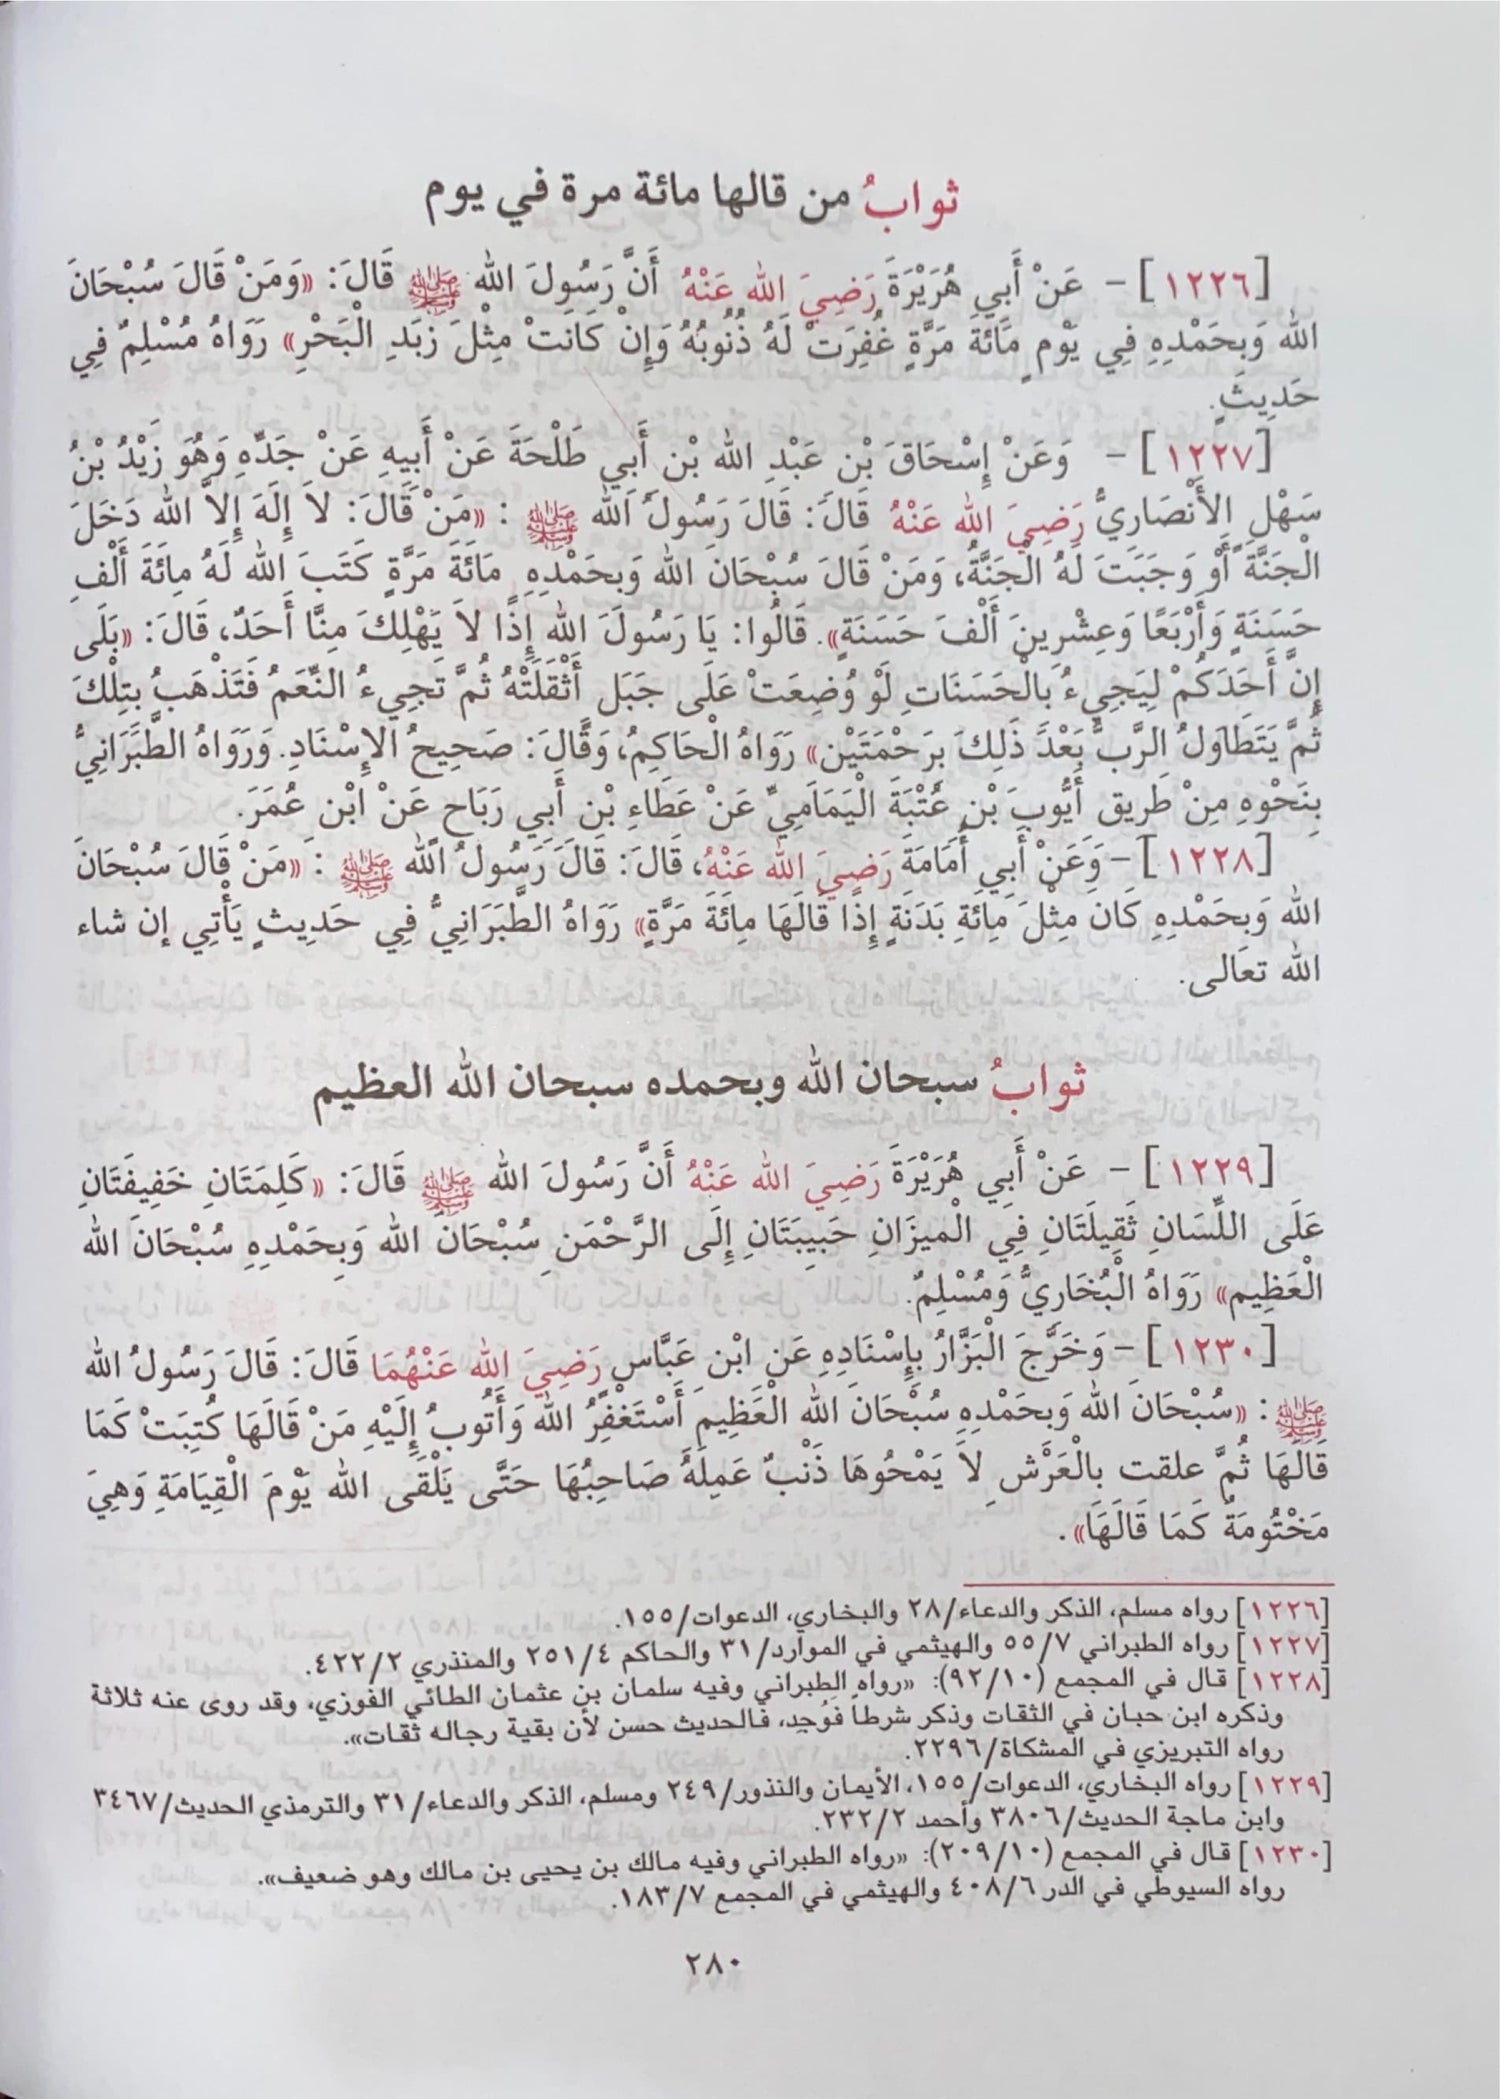 ثوابُ من قالها مائة مرة في يوم
[١٢٢٦] - عَنْ أَبِي هُرَيْرَةَ رَضِيَ الله عَنْهُ أَنَّ رَسُولَ الله ﷺ قَالَ: «وَمَنْ قَالَ سُبْحَانَ
الله وَبِحَمْدِهِ فِي يَوْمٍ مَائَةَ مَرَّةٍ غُفِرَتْ لَهُ ذُنُوبُهُ وَإِنْ كَانَتْ مِثْلَ زَبَدِ الْبَحْرِ» رَوَاهُ مُسْلِمٌ فِي
حَدِيثٍ.
[١٢٢٧] - وَعَنْ إِسْحَاقَ بْنِ عَبْدِ الله بْنِ أَبِي طَلْحَةَ عَنْ أَبِيهِ عَنْ جَدِّهِ وَهُوَ زَيْدُ بْنُ
سَهْلٍ الأَنْصَارِيُّ رَضِيَ الله عَنْهُ قَالَ: قَالَ رَسُولُ الله ﷺ : «مَنْ قَالَ: لاَ إِلَهَ إِلاَّ الله دَخَلَ
الْجَنَّةَ أَوْ وَجَبَتَ لَهُ الْجَنَّةُ، وَمَنْ قَالَ سُبْحَانَ الله وَبِحَمْدِهِ مَائَةَ مَرَّةٍ كَتَبَ الله لَهُ مِائَةَ أَلْفِ
حَسَنَةٍ وَأَرْبَعًا وَعِشْرِينَ أَلْفَ حَسَنَةٍ». قَالُوا: يَا رَسُولَ الله إِذًا لاَ يَهْلِكَ مِنَّا أَحَدٌ، قَالَ: «بَلَى
إِنَّ أَحَدَكُمْ لِيَجِيءُ بِالْحَسَنَاتِ لَوْ وُضِعَتْ عَلَى جَبَلٍ أَثْقَلَتْهُ ثُمَّ تَجِيءُ النِّعَمُ فَتَذْهَبُ بِتِلْكَ
ثُمَّ يَتَطَاوَلُ الرَّبُّ بَعْدَ ذَلِكَ بِرَحْمَتَيْنِ» رَوَاهُ الْحَاكِمُ، وَقَالَ: صَحِيحُ الإِسْنَادِ. وَرَوَاهُ الطَّبَرَانِيُّ
بِنَحْوِهِ مِنْ طَرِيقِ أَيُّوبَ بْنِ عُتْبَةَ الْيَمَامِيِّ عَنْ عَطَاءِ بْنِ أَبِي رَبَاحٍ عَنْ ابْنِ عُمَرَ.
[١٢٢٨] - وَعَنْ أَبِي أُمَامَةَ رَضِيَ الله عَنْهُ، قَالَ: قَالَ رَسُولُ الله ﷺ : «مَنْ قَالَ سُبْحَانَ
الله وَبِحَمْدِهِ كَانَ مِثْلَ مِائَةِ بَدَنَةٍ إِذَا قَالَهَا مِائَةَ مَرَّةٍ» رَوَاهُ الطَّبَرَانِيُّ فِي حَدِيثٍ يَأْتِي إن شاء
الله تعَالى.
ثوابُ سبحان الله وبحمده سبحان الله العظيم
[١٢٢٩] - عَنْ أَبِي هُرَيْرَةَ رَضِيَ الله عَنْهُ أَنَّ رَسُولَ الله ﷺ قَالَ: «كَلِمَتَانِ خَفِيفَتَانِ
عَلَى اللِّسَانِ ثَقِيلَتَانِ فِي الْمِيزَانِ حَبِيبَتَانِ إِلَى الرَّحْمَنِ سُبْحَانَ الله وَبِحَمْدِهِ سُبْحَانَ الله
الْعَظِيمِ» رَوَاهُ الْبُخَارِيُّ وَمُسْلِمٌ.
[١٢٣٠] - وَخَرَّجَ الْبَزَّارُ بِإِسْنَادِهِ عَنِ ابْنِ عَبَّاسٍ رَضِيَ الله عَنْهُمَا قَالَ: قَالَ رَسُولُ الله
ﷺ : «سُبْحَانَ الله وَبِحَمْدِهِ سُبْحَانَ الله الْعَظِيمَ أَسْتَغْفِرُ الله وَأَتُوبُ إِلَيْهِ مَنْ قَالَهَا كُتِبَتْ كَمَا
قَالَهَا ثُمَّ علقت بِالْعَرْشِ لاَ يَمْحُوهَا ذَنْبٌ عَمِلَهُ صَاحِبُهَا حَتَّى يَلْقَى الله يَوْمَ الْقِيَامَةِ وَهِيَ
مَخْتُومَةٌ كَمَا قَالَهَا».
[١٢٢٦] رواه مسلم، الذكر والدعاء/٢٨ والبخاري، الدعوات/١٥٥.
[١٢٢٧] رواه الطبراني ٥٥/٧ والهيثمي في الموارد/٣١ والحاكم ٢٥١/٤ والمنذري ٤٢٢/٢.
[١٢٢٨] قال في المجمع (٩٢/١٠): «رواه الطبراني وفيه سلمان بن عثمان الطائي الفوزي، وقد روى عنه ثلاثة
وذكره ابن حبان في الثقات وذكر شرطاً فوُجد، فالحديث حسن لأن بقية رجاله ثقات».
رواه التبريزي في المشكاة/٢٢٩٦.
[١٢٢٩] رواه البخاري، الدعوات/١٥٥، الأيمان والنذور/٢٤٩ ومسلم، الذكر والدعاء/٣١ والترمذي الحديث/٣٤٦٧
وابن ماجة الحديث/٣٨٠٦ وأحمد ٢٣٢/٢.
[١٢٣٠] قال في المجمع (٢٠٩/١٠): «رواه الطبراني وفيه مالك بن يحيى بن مالك وهو ضعيف».
رواه السيوطي في الدر ٤٠٨/٦ والهيثمي في المجمع ١٨٣/٧.
٢٨٠